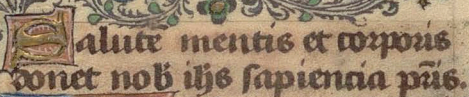 Salutē mentis et corporis
donet nob̄ ih̄s sapiencia pr̄is.